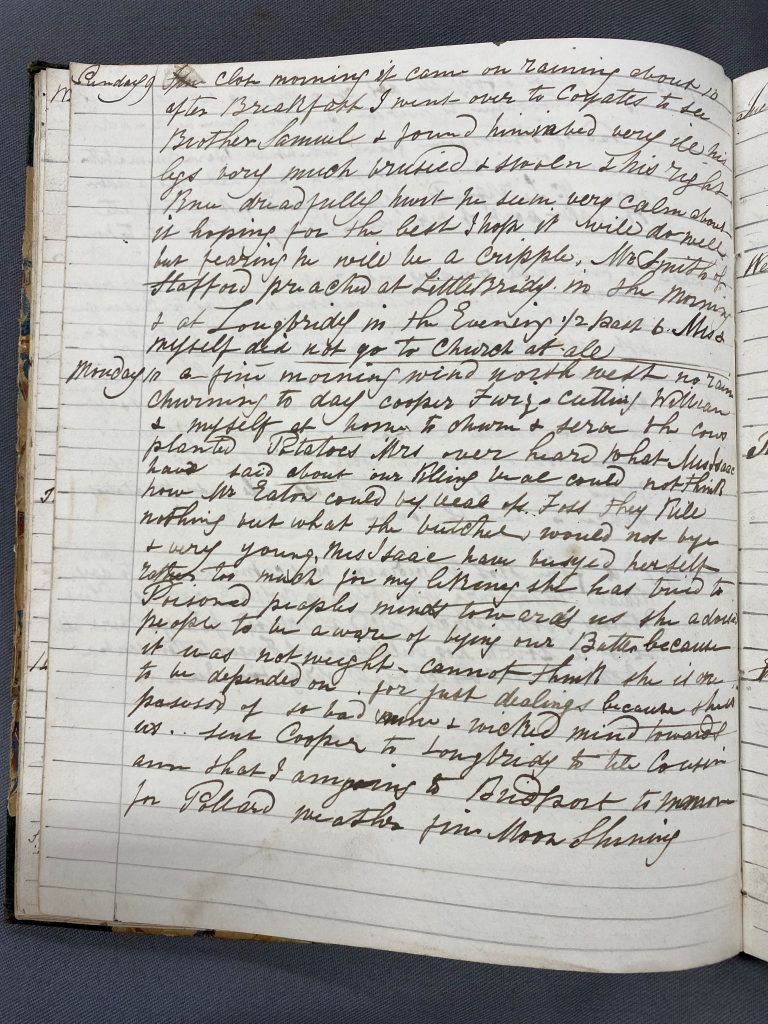 Sunday 9 close morning it came on raining about 10
after Breakfast I went over to Coyates to see
Brother Samuel & found him abed very ill his
legs very much brusied & swolen & his right
Knee dreadfully hurt he seem very calm about
it hoping for the best I hope it will do well
but fearing he will be a cripple, Mr Smith of
Stafford preached at LittleBridy in the Morning
& at Longbridy in the Evening 1/2 past 6. Mis &
myself did not go to Church at ale
Monday 10 a fine morning wind north west no rain
churning to day cooper Furze cutting William
& myself at home to churn & serve the cows
planted Potatoes Mrs over heard what Mis Isaac
have said about our Kling veal could not think
how Mr Eaton could by veal of Foss they Kile
nothing but what the butcher would not bye
& very young, Mis Isaac have busyed herself
rather too much for my liking she has tried to
Poisoned peoples minds towards us she advise
people to be aware of bying our Butter because
it was not weight - cannot think she is one
to be depended on for just dealings because she is
posessed of so bad & wicked mind towards
us.. sent Cooper to Longbridy to tell Cousin
ann that I am going to Bridport to morrow
for Pollard weather fine Moon Shining